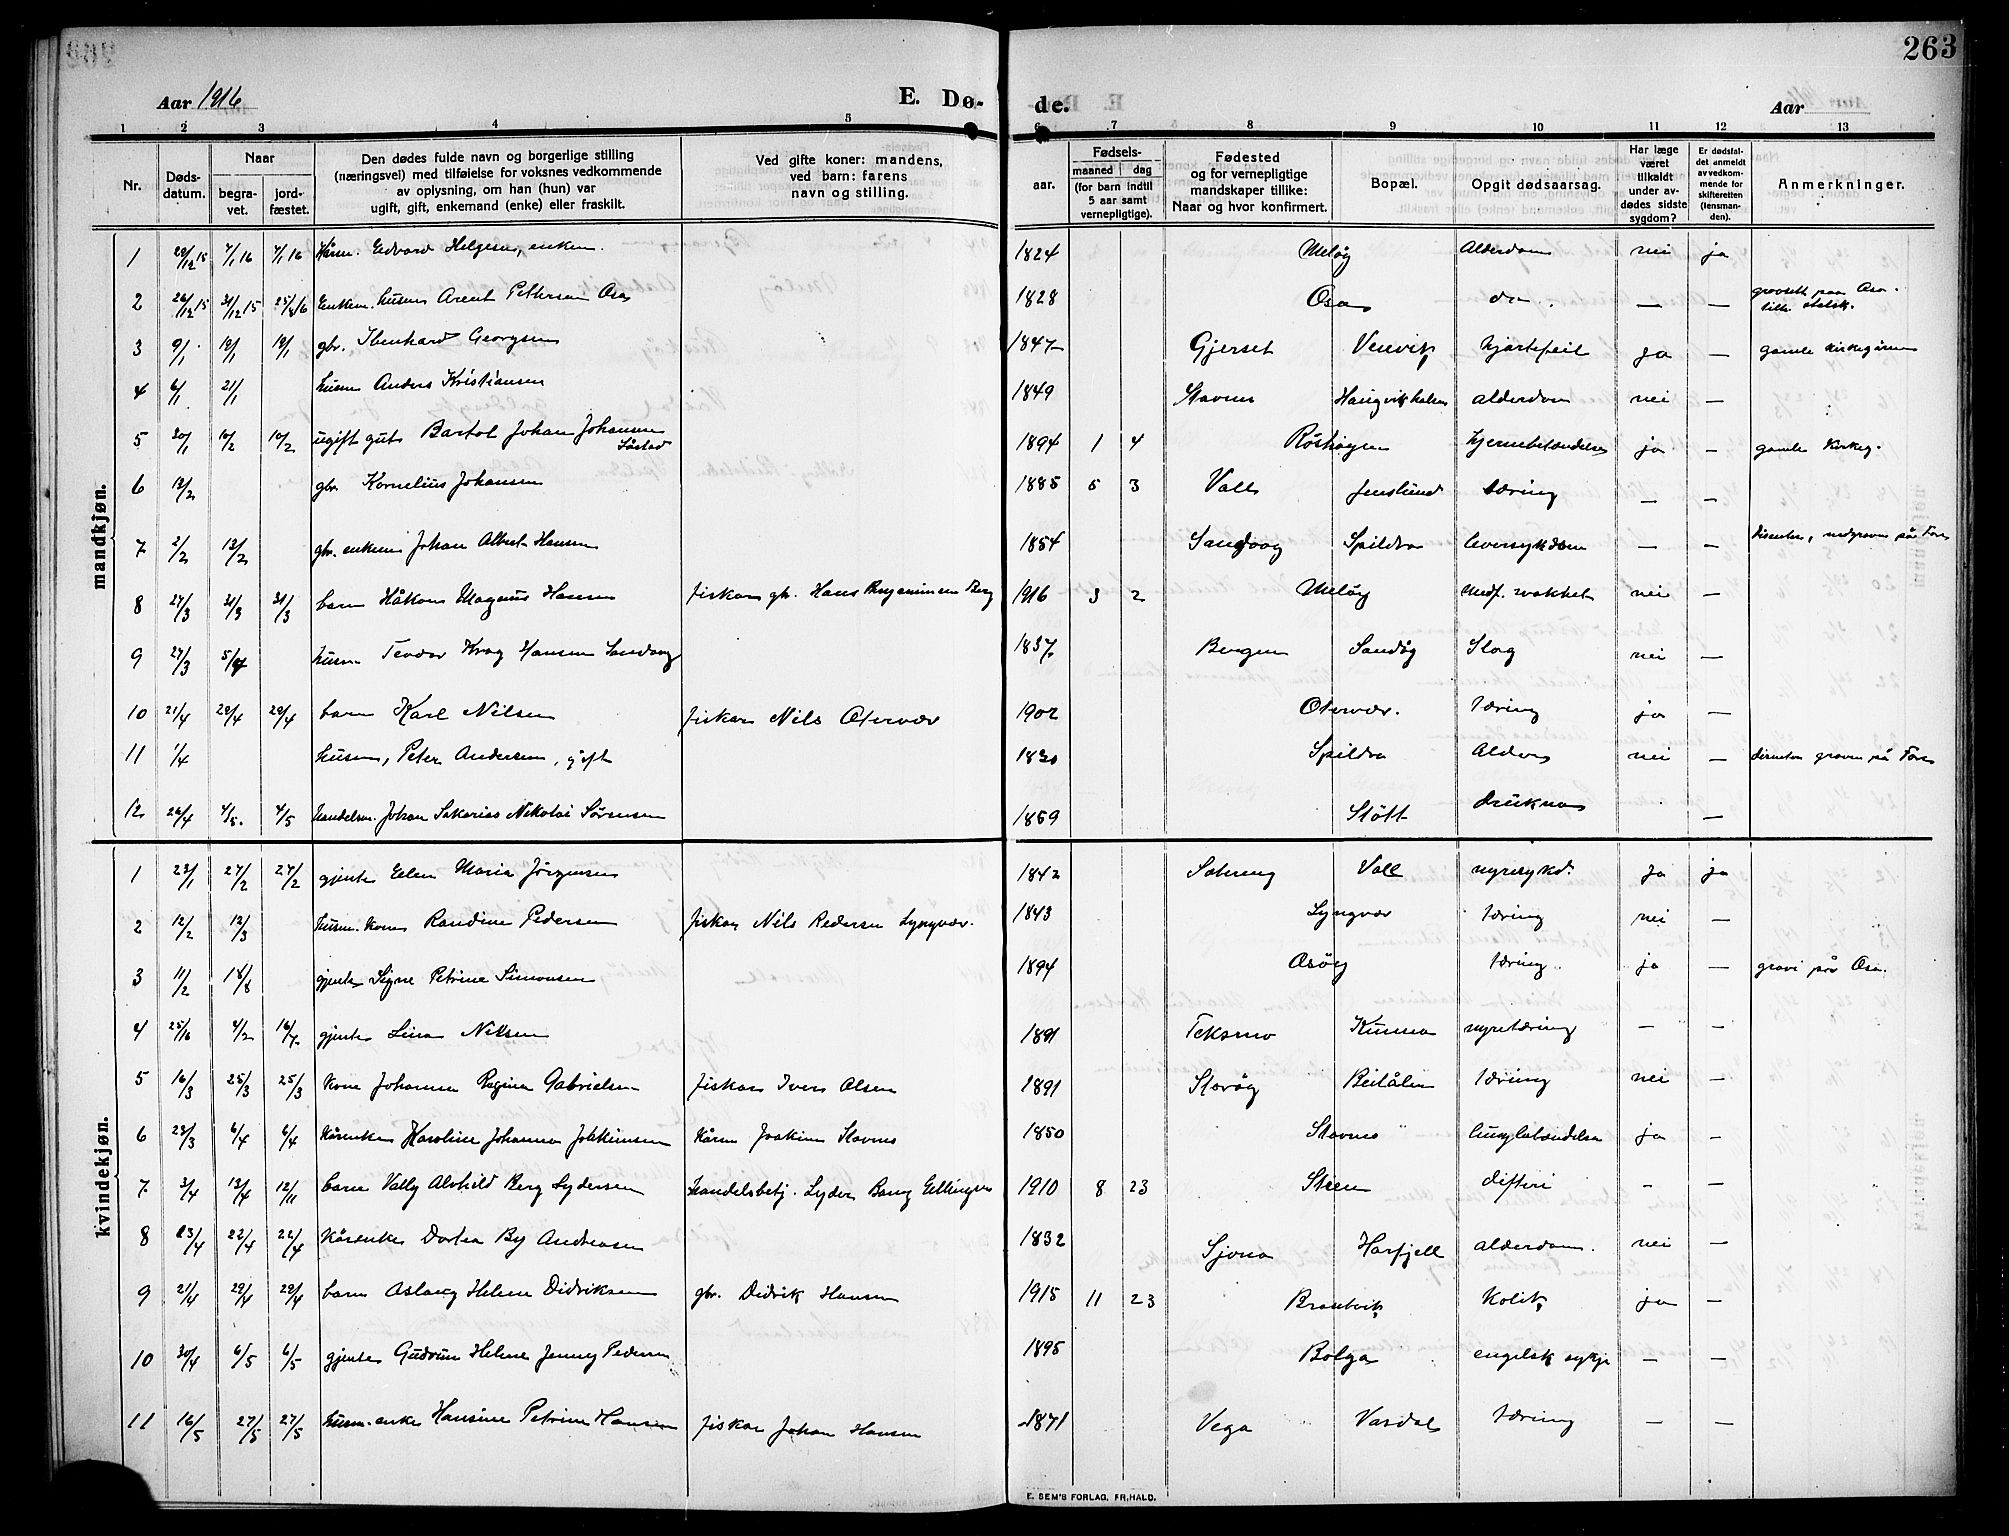 263
Aar 1916
E. Dø-
de.
Aar
1 2 3 4 5 6 7 8 9 10 11 12 13
Nr.
Døds-
datum.
Naar
begra-
vet.
jord-
fæstet.
Den dødes fulde navn og borgerlige stilling
(næringsvei) med tilføielse for voksnes vedkommende
av oplysning, om han (hun) var
ugift, gift, enkemand (enke) eller fraskilt.
Ved gifte koner: mandens,
ved barn: farens
navn og stilling.
Fødsels-
aar.
maaned dag
(for barn indtil
5 aar samt
vernepligtige).
Fødested
og for vernepligtige
mandskaper tillike:
Naar og hvor konfirmert.
Bopæl.
Opgit dødsaarsag.
Har læge
været
tilkaldt
under av-
dødes sidste
sygdom?
Er dødsfal-
det anmeldt
av vedkom-
mende for
skifteretten
(lensman-
den).
Anmerkninger.
mandkjøn.
1 29/12 15 4/1 16 4/1 16 Kårm. Edvard Helgesen, enkem. 1824 Meløy Alderdom nei ja
2 26/12 15 31/12 15 Enkem. husm Arent Pettersen Osa 1828 Osa do — — gravsatt paa Osa
3 9/1 19/1 19/1 gbr. Ibenhard Georgsen 1847 Gjerset Venevik hjartefeil ja — gamle kirkegården
4 6/1 21/1 husm Anders Kristiansen 1849 Stavnes Haugvikholm alderdom nei —
5 30/1 10/2 10/2 ugift gut Bartol Johan Johansen 1894 1 4 Røshagen hjernebetændelse ja — gamle kirkeg.
6 13/2 gbr Kornelius Johansen 1885 5 3 Valle Jenslund tæring — —
7 2/2 13/2 gbr. enkem Johan Albert Hansen 1854 Sandvåg Spildra leversykdom — — Disenter, nedgraven på Fore
8 27/3 31/3 31/3 barn Håkon Magnus Hansen fiskar gbr. Hans Benjaminsen Berg 1916 3 2 Meløy Medf. svakhet nei —
9 27/3 5/4 husm Teodor Krog Hansen Sandvåg 1837 Bergen Sandåg Slag nei —
10 21/4 29/4 29/4 barn Karl Nilsen fiskar Nils Otervær 1902 Otervær. tæring ja —
11 1/4 husm, Peter Andersen, gift 1830 Spildra Alders nei — disenter graven på Fore
12 26/4 4/5. 4/5 handelsm. Johan Sakarias Nikolai Sørensen 1859 Støtt druknet —
kvindekjøn.
1 23/1 27/2 27/2 gjente Ellen Maria Jørgensen 1842 Valle nyresykd. ja ja
2 12/2 13/3 husm. kone Randine Pedersen fiskar Nils Pedersen Lyngvær. 1843 Lyngvær tæring nei —
3 11/2 18/8 gjente Signe Petrine Simonsen 1894 Osøy tæring ja — gravi på Osa.
4 25/16 4/2 16/4 gjente Lina Nilsen 1891 Teksmo Kunna nyretæring — —
5 16/3 25/3 25/3 kone Johanna Regine Gabrielsen fiskar Ivers Olsen 1891 Storøy Beitålen tæring nei —
6 23/3 6/4 6/4 Kårenke Karoline Johanna Joakimsen Kårm Joakim Stavnes 1850 Stavnes lungebetændelse ja —
7 3/4 13/4 12/11 barn Vally Alvhild Berg Lydersen Handelsbetj. Lyder Bang Ellingsen 1910 8 23 Steen difteri — —
8 13/4 22/4 22/4 Kårenke Dortea By Andreasen 1832 Sjona Harfjell alderdom. nei —
9 21/4 29/4 29/4 barn Aslaug Helene Didriksen gbr. Didrik Hansen 1915 11 23 Brantvik kolik ja —
10 30/4 6/5 6/5 gjente Gudrun Helene Jenny Pedersen 1895 Bolga engelsk sykje — —
11 16/5 27/5 27/5 husm-enke Hansine Petrine Hansen fiskar Johan Hansen 1871 Vega Vasdal tæring — —
E. SEM'S FORLAG, FR.HALD.